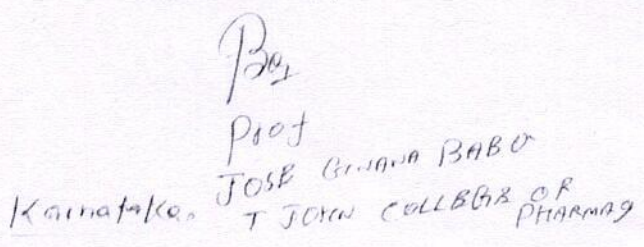 Prof
JOSE GNANA BABU
Karnataka. T JOHN COLLEGE OF
PHARMACY